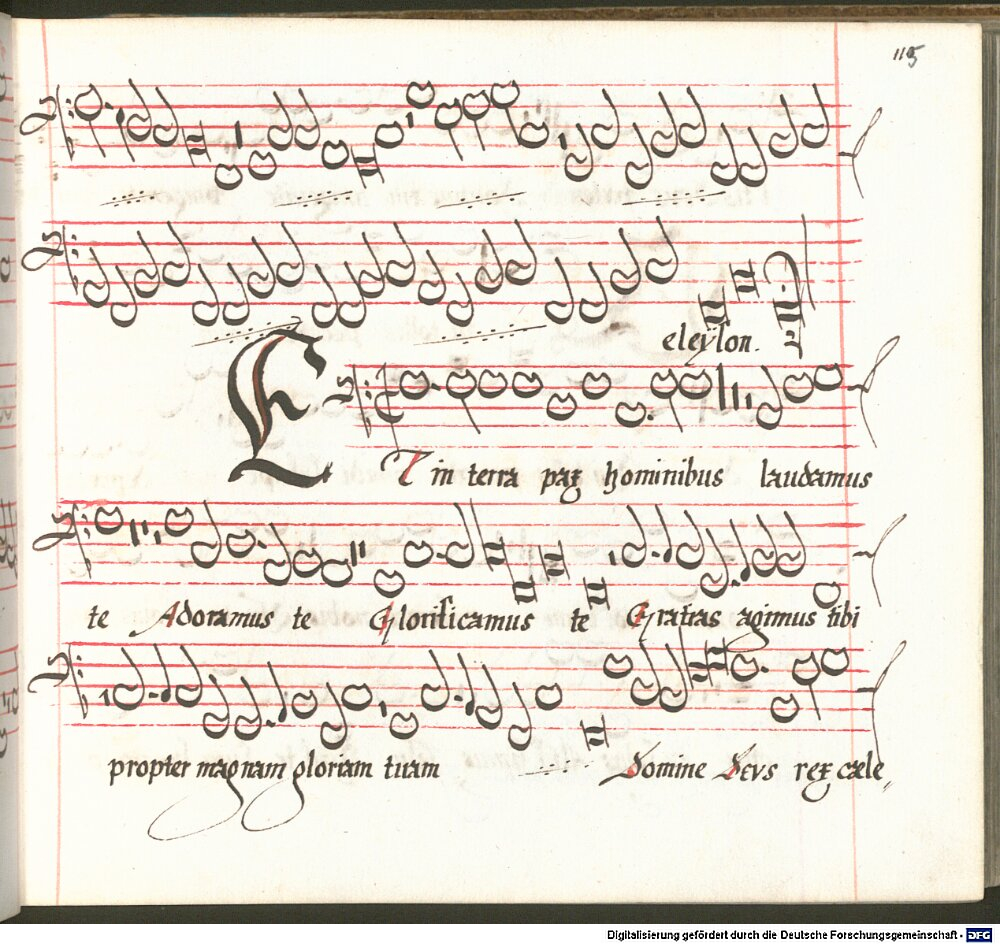 115
eleyson.
ET in terra pax hominibus laudamus
te Adoramus te Glorificamus te Gratias agimus tibi
propter magnam gloriam tuam Domine Deus rex cæle„
Digitalisierung gefördert durch die Deutsche Forschungsgemeinschaft - DFG